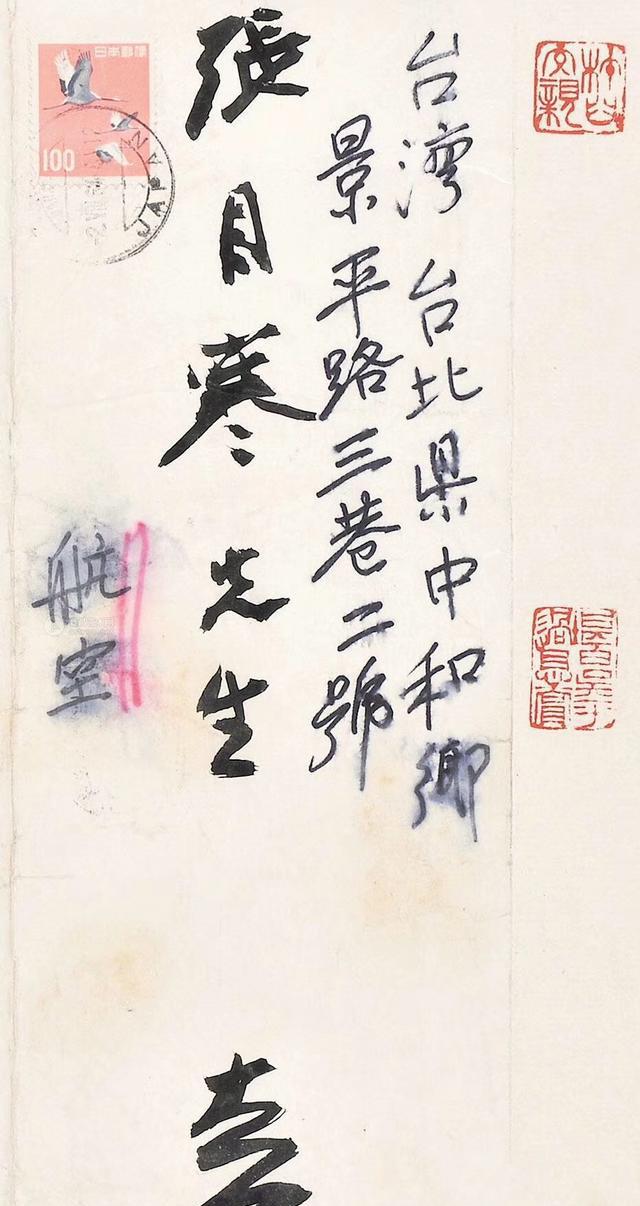 台湾 台北県中和鄉
景平路三巷二號
張目寒先生
航空
日本郵便
100
JAPAN